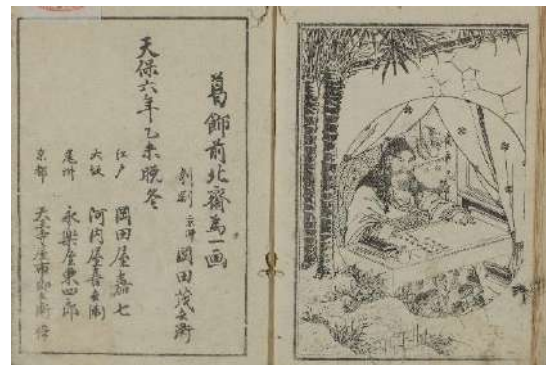 葛飾前北齋為一画
剞劂 京師 岡田茂兵衛
天保六年乙未晩冬
江戸 岡田屋嘉七
大坂 河内屋喜兵衛
尾州 永樂屋東四郎
京都 天王寺屋市郎兵衛